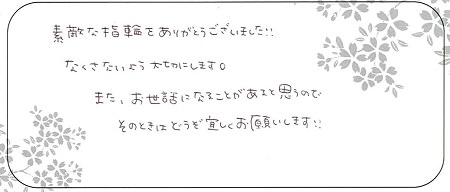 素敵な指輪をありがとうございました!!
なくさないよう大切にします。
また、お世話になることがあると思うので
そのときはどうぞ宜しくお願いします!!